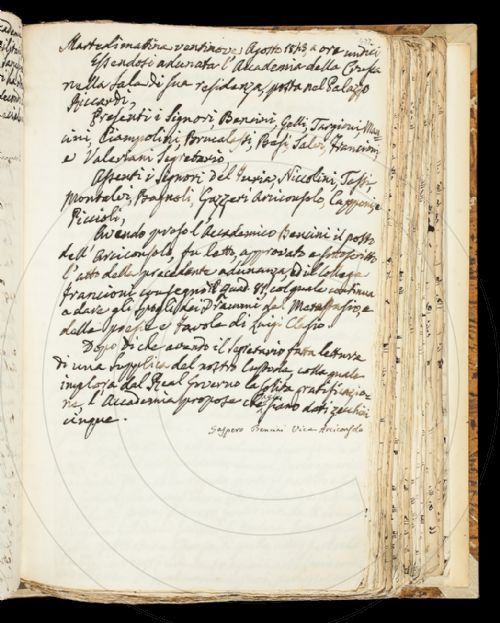 Martedì mattina ventinove Agosto 1843 a ore undici
Essendosi adunata l'Accademia della Crusca
nella sala di sua residenza, posta nel Palazzo
Riccardi,
Presenti i Signori Bencini, Gelli, Targioni,
Ciampolini, Brucalassi, Basi, Salvi, Francioni,
e Valeriani Segretario,
Assenti i Signori Del Furia, Niccolini, Tassi,
Montalvi, Bagnoli, Gazzeri Arciconsolo, Capponi, e
Piccioli,
Avendo preso l'Accademico Bencini il posto
dell'Arciconsolo, fu letto, approvato e sottoscritto
l'atto della precedente adunanza. Ed il Collega
Francioni consegnò il quad. col quale continua
a dare gli spogli dei Drammi del Metastasio, e
delle poesie e favole di Luigi Clasio
Dopo di che avendo il Segretario fatta lettura
di una supplica del nostro Custode, colla quale
implora dal Real Governo la solita gratificazio-
ne, l'Accademia propose che siano dati zecchini
cinque.
Gaspero Bencini Vice Arciconsolo